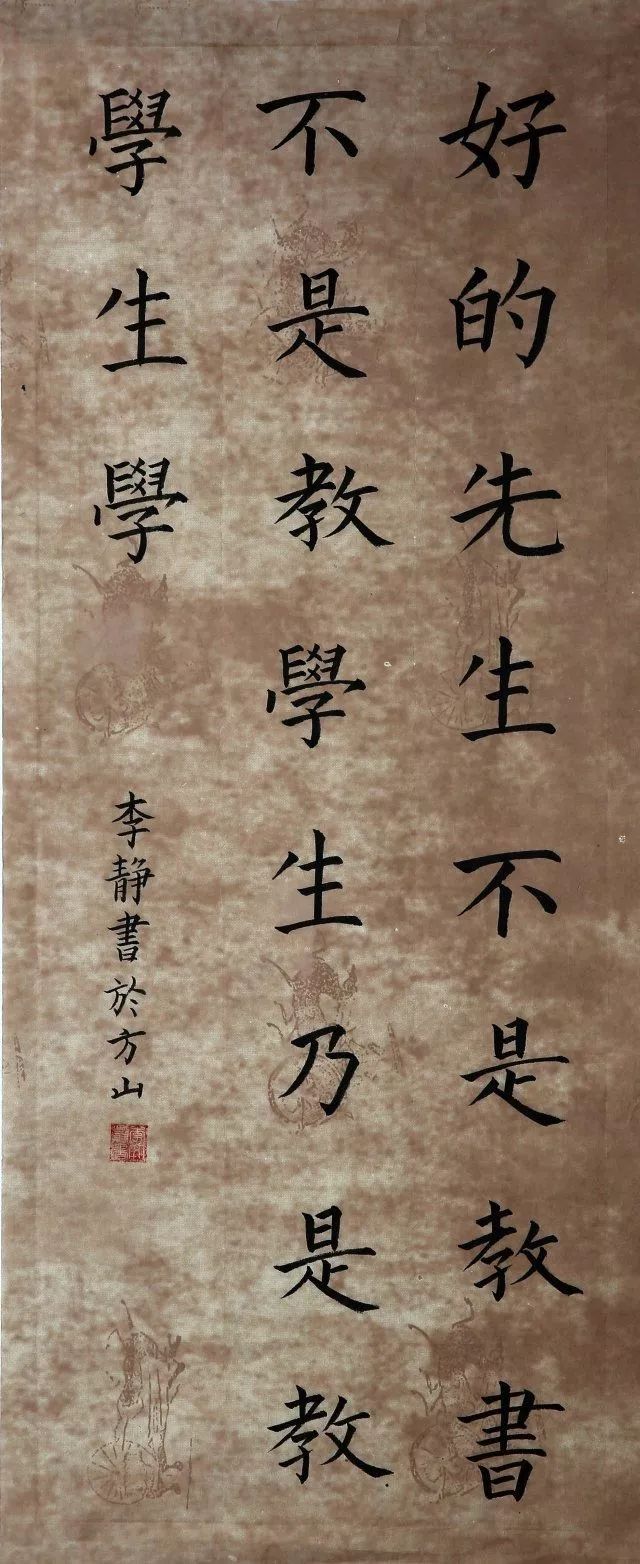 好的先生不是教書
不是教學生乃是教
學生學
李静書於方山